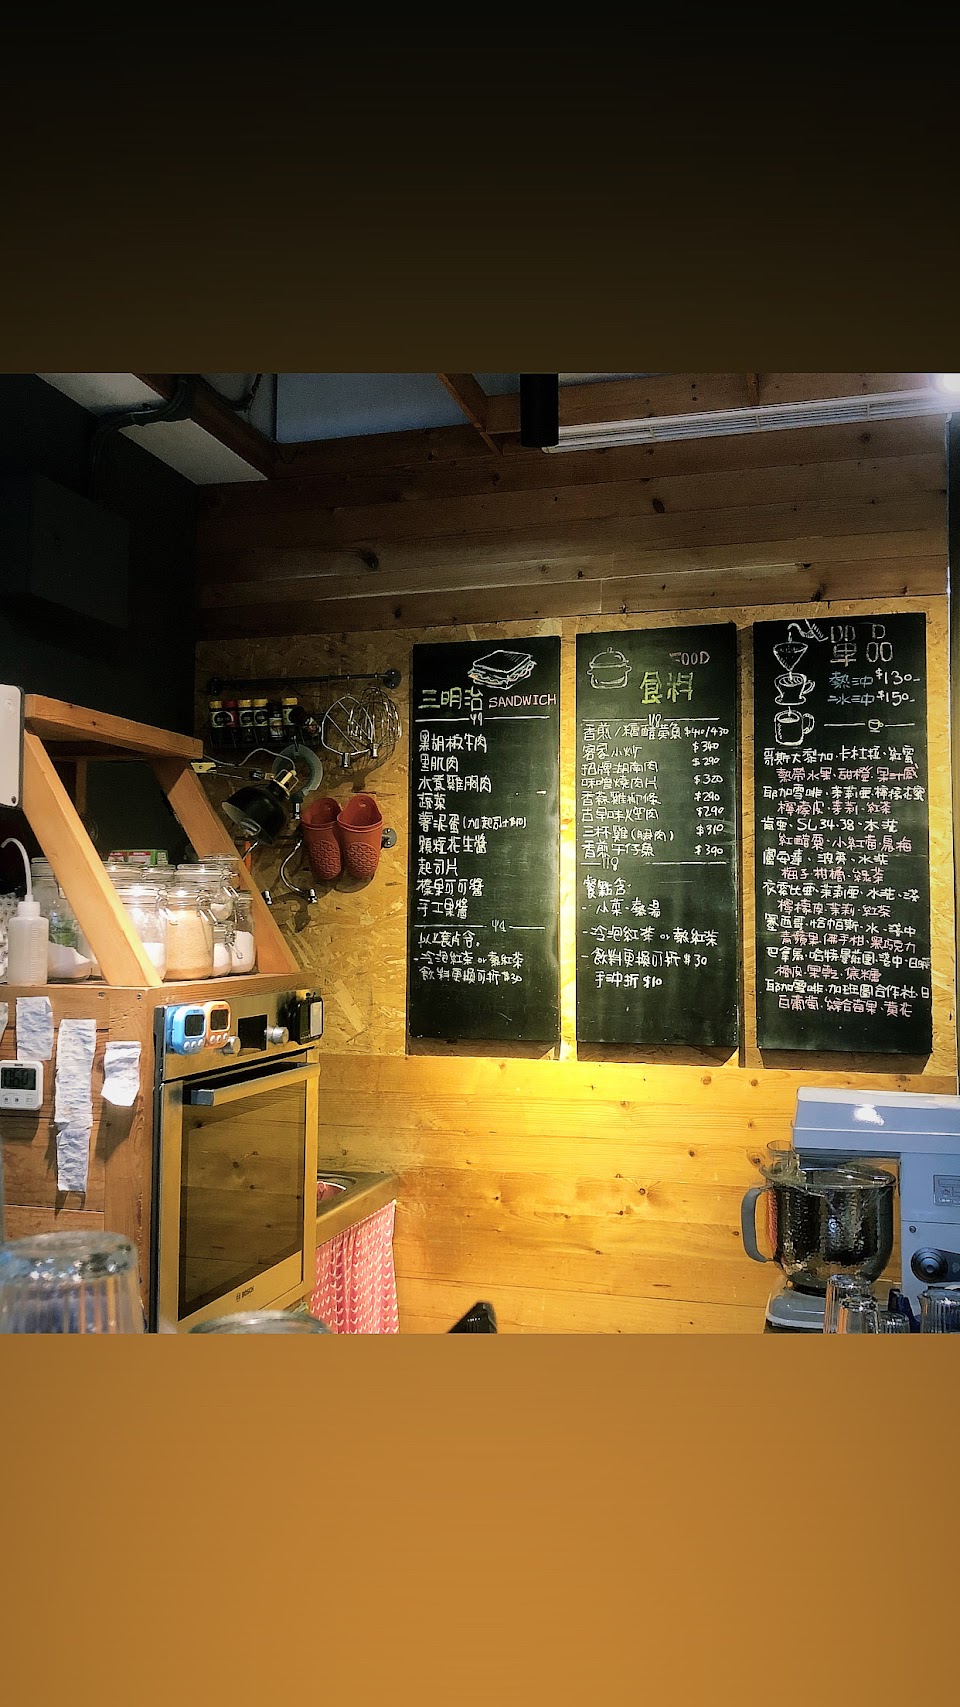 三明治 SANDWICH
黑胡椒牛肉
里肌肉
水煮雞胸肉
蔬菜
薯泥蛋(加起司+$10)
顆粒花生醬
起司片
榛果可可醬
手工果醬
以上套片含。
-冷泡紅茶 or 熱紅茶
飲料更換可折$30
FOOD
食料
香煎/糖醋黃魚 $410/430
客家小炒 $340
招牌湖南肉 $290
味噌燒肉片 $320
香蒜雞柳條 $290
古早味火空肉 $290
三杯雞(胸肉) $310
香煎午仔魚 $390
餐點含:
- 小菜·熱湯
-冷泡紅茶 or 熱紅茶
-飲料更換可折$30
手沖折$10
單品
熱沖$130-
冰沖$150-
哥斯大黎加·卡杜拉·紅蜜
熱帶水果·甜橙·果汁感
耶加雪啡·茉莉亞·檸檬花蜜
檸檬皮·茉莉·紅茶
肯亞·SL 34·38·水洗
紅醋栗·小紅莓·烏梅
盧安達·波旁·水洗
梅子·柑橘·綠茶
衣索比亞·茉莉亞·水洗·淺
檸檬皮·茉莉·紅茶
墨西哥·恰帕斯·水·淺中
青蘋果·佛手柑·黑巧克力
巴拿馬·哈特曼莊園·淺中·日曬
橘皮·果乾·焦糖
耶加雪啡·加班圖合作社·日
白葡萄·綜合莓果·黃花
BOSCH